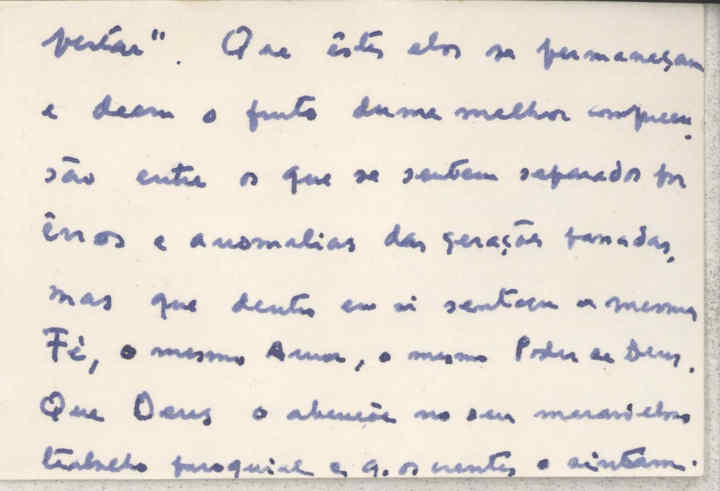 pertar". Que êstes elos se permaneçam
e deem o fruto duma melhor compreen-
são entre os que se sentem separados por
êrros e anomalias das gerações passadas,
mas que dentro em si sentem a mesma
Fé, o mesmo Amor, o mesmo Poder de Deus.
Que Deus o abençoe no seu maravilhoso
trabalho paroquial e q. os crentes o sintam.